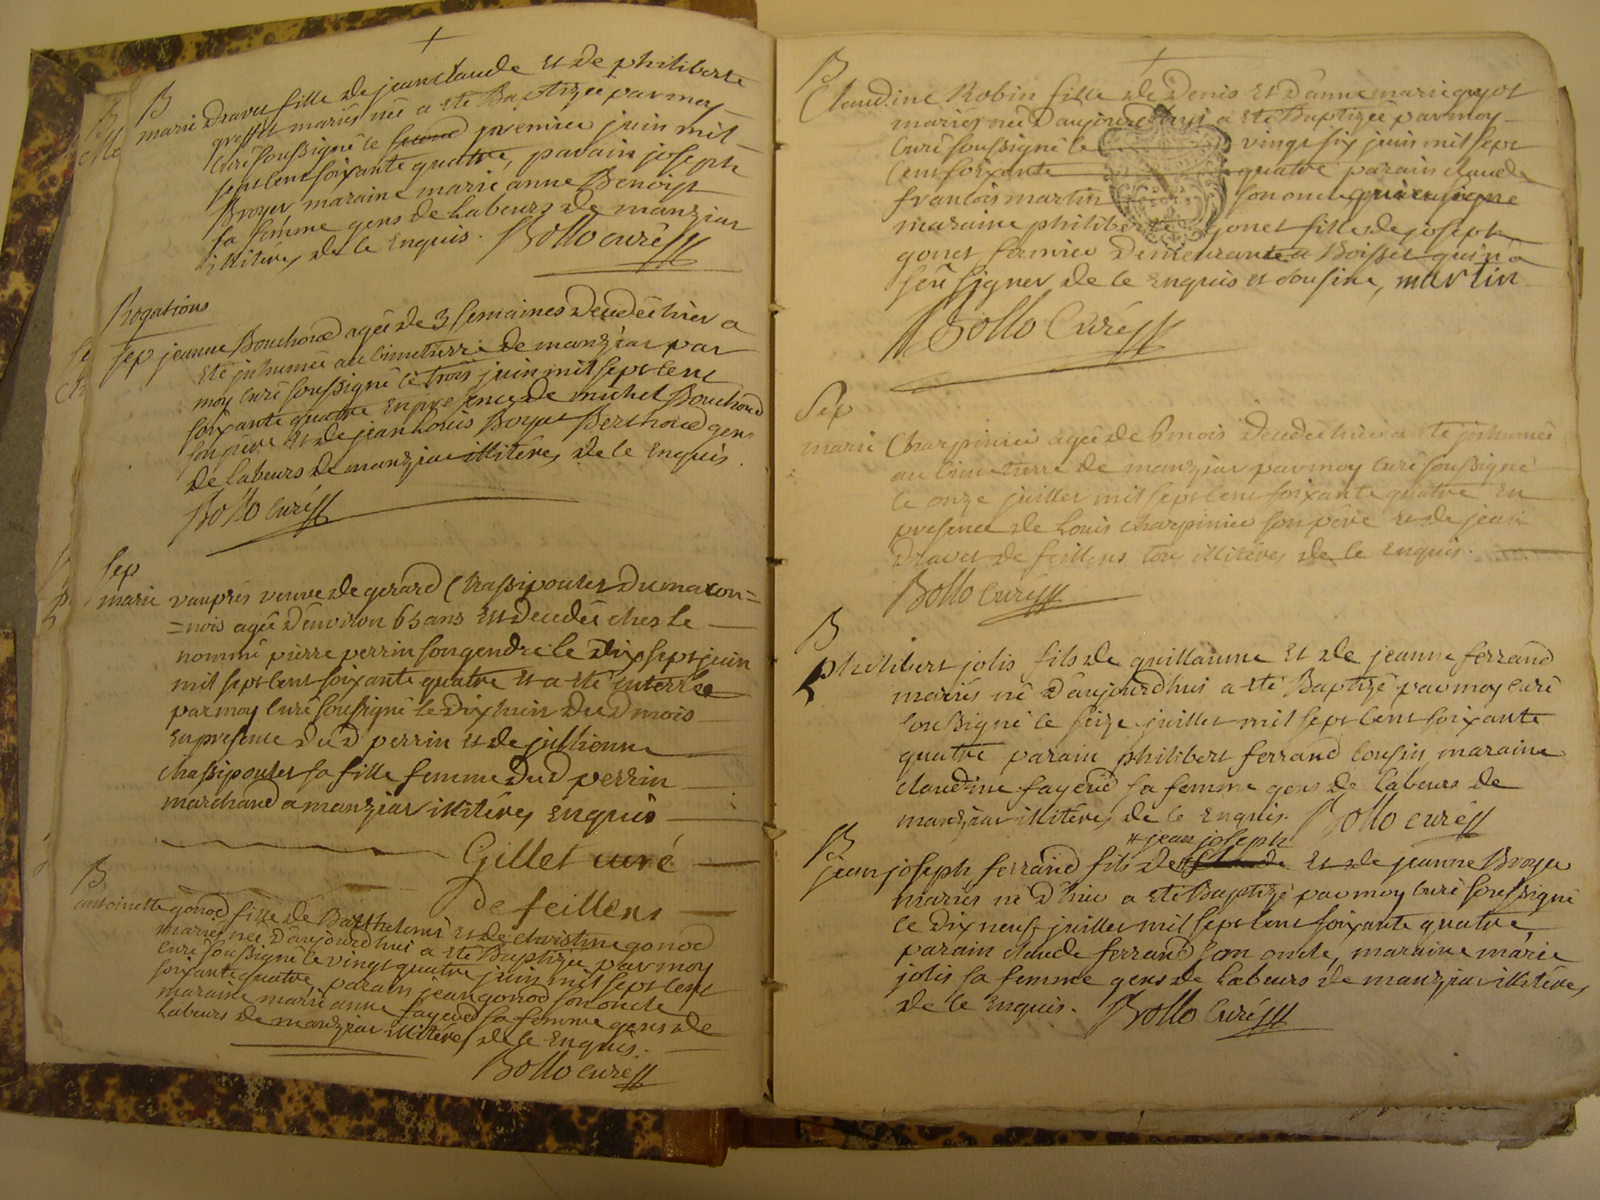 B
marie Dravet fille de jean claude et de philiberte
mariés née a eté Baptizée par moy
Curé soussigné le premier juin mil
sept cent soixante quatre, parain joseph
Broyer maraine marie anne Benoist
sa femme gens de Labeurs de manziat
illitérés de ce Enquis. Bollo curé
Rogations
sep jeanne Bouchoud agée de 3 semaines decedée hier a
eté inhumée au Cimetierre de manziat par
moy Curé soussigné le trois juin mil sept cent
soixante quatre en presence de michel Bouchoud
son père et de jean Louis Boyat Berthoud gens
de Labeurs de manziat illitérés de ce Enquis.
Bollo Curé
sep
marie vauprés veuve de gerard Chassipoulet du macon=
=nois agée d'environ 65 ans est decedée chez le
nommé pierre perrin son gendre le dix sept juin
mil sept cent soixante quatre et a eté enterrée
par moy Curé soussigné le dix huit dud mois
en presence dud perrin et de jullienne
chassipoulet sa fille femme dud perrin
marchand a manziat illitérés enquis
Gillet curé
de feillens
B
antoinette gonod fille de Barthelemi et de christine gonod
mariés née d'aujourd'hui a eté Baptizée par moy
Curé soussigné le vingt quatre juin mil sept cent
soixante quatre, parain jean gonod son oncle
maraine marie anne fayeud sa femme gens de
Labeurs de manziat illitérés de ce Enquis.
Bollo curé
B
Claudine Robin fille de Denis et d'anne marie guyot
mariés née d'aujourd'hui a eté Baptizée par moy
Curé soussigné le vingt six juin mil sept
Cent soixante quatre parain claude
francois martin son oncle qui a signé
maraine philiberte gonet fille de joseph
gonet fermier demeurant a Boisset qui n'a
sçu signer de ce enquis et martin
Bollo Curé
Sep
marie Charpinier agée de 6 mois decedée hier a eté inhumée
au Cimetierre de manziat par moy Curé soussigné
le onze juillet mil sept cent soixante quatre en
presence de Louis charpinier son père et de jean
Dravet de feillens tous illitérés de ce enquis.
Bollo Curé
B
philibert jolis fils de guillaume et de jeanne ferrand
mariés né d'aujourd'hui a eté Baptizé par moy Curé
soussigné le seize juillet mil sept cent soixante
quatre parain philibert ferrand Cousin maraine
claudine fayeud sa femme gens de Labeurs de
manziat illitérés de ce Enquis. Bollo curé
B
+ jean joseph
jean joseph ferrand fils de et de jeanne Broyer
mariés né d'hier a eté Baptizé par moy Curé soussigné
le dix neuf juillet mil sept cent soixante quatre
parain claude ferrand son oncle, maraine marie
jolis sa femme gens de Labeurs de manziat illitérés
de ce Enquis. Bollo Curé